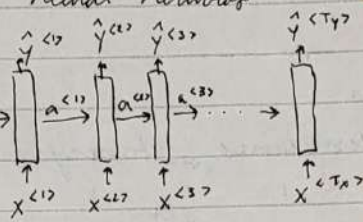 ŷ<1> ŷ<2> ŷ<3> ŷ<Ty>
a<1> a<2> a<3> ...
x<1> x<2> x<3> x<Tx>